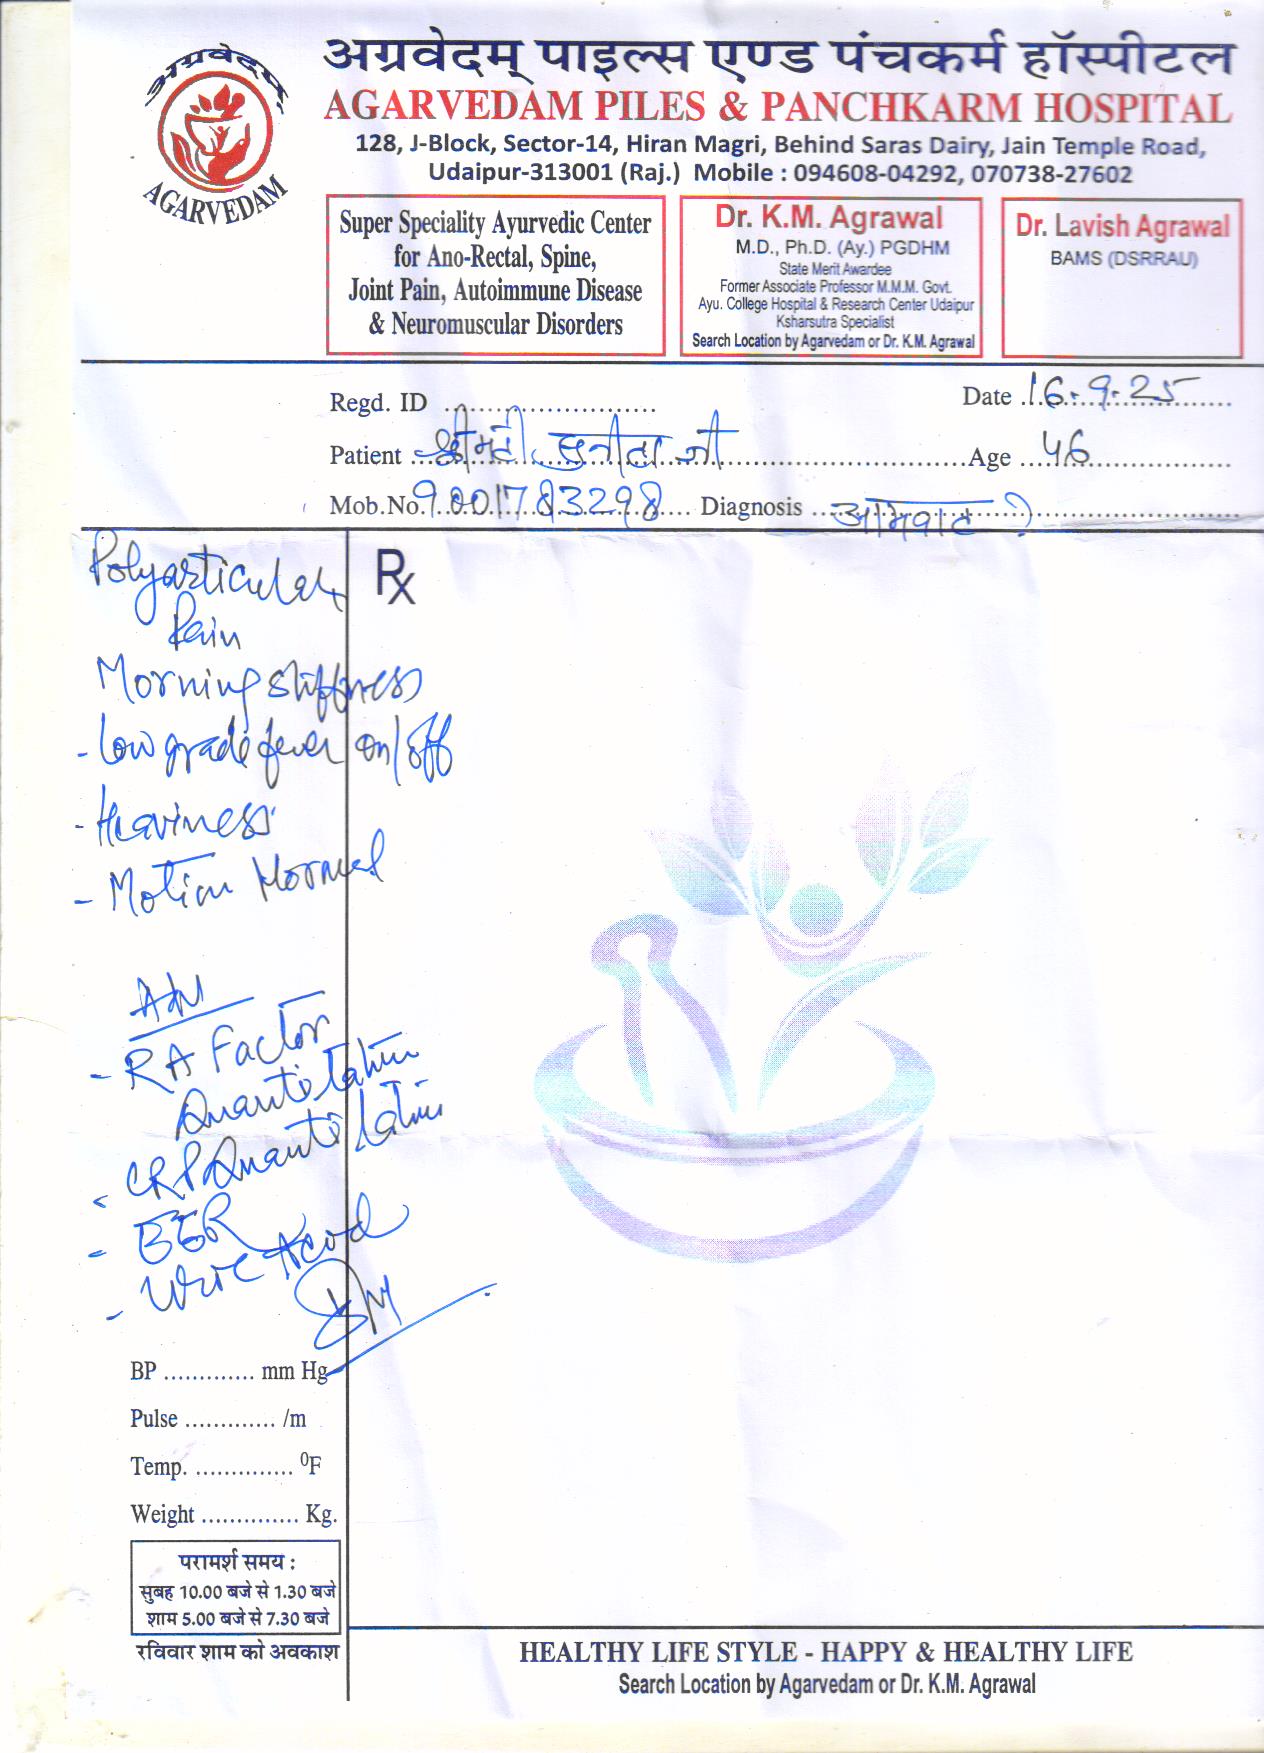 अग्रवेदम्
AGARVEDAM
अग्रवेदम् पाइल्स एण्ड पंचकर्म हॉस्पीटल
AGARVEDAM PILES & PANCHKARM HOSPITAL
128, J-Block, Sector-14, Hiran Magri, Behind Saras Dairy, Jain Temple Road,
Udaipur-313001 (Raj.) Mobile : 094608-04292, 070738-27602
Super Speciality Ayurvedic Center
for Ano-Rectal, Spine,
Joint Pain, Autoimmune Disease
& Neuromuscular Disorders
Dr. K.M. Agrawal
M.D., Ph.D. (Ay.) PGDHM
State Merit Awardee
Former Associate Professor M.M.M. Govt.
Ayu. College Hospital & Research Center Udaipur
Ksharsutra Specialist
Search Location by Agarvedam or Dr. K.M. Agrawal
Dr. Lavish Agrawal
BAMS (DSRRAU)
Regd. ID ........................ Date 16.9.25
Patient श्रीमती सुनीता जी Age 46
Mob.No. 9001783298 Diagnosis आमवात ?
Rx
Polyarticular
Pain
Morning stiffness
- Low grade fever on/off
- Heaviness
- Motion Normal
Adv
- RA Factor
Quantitative
- CRP Quantitative
- ESR
- Uric Acid
BP ............. mm Hg
Pulse ............. /m
Temp. .............. ⁰F
Weight .............. Kg.
परामर्श समय :
सुबह 10.00 बजे से 1.30 बजे
शाम 5.00 बजे से 7.30 बजे
रविवार शाम को अवकाश
HEALTHY LIFE STYLE - HAPPY & HEALTHY LIFE
Search Location by Agarvedam or Dr. K.M. Agrawal